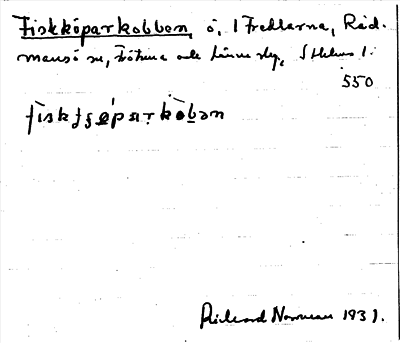 Fiskköparkobben, ö, I Fredlarna, Råd-
mansö sn, Frötuna och Länna slg, Sthlms l.
550
fiskköparkobben
Rickard Norman 1931.